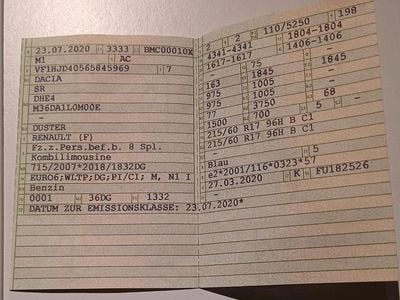 23.07.2020 3333 BMC00010X
M1 AC
VF1HJD40565845969 7
DACIA
SR
DHE4
M36DA1L0M00E
–
DUSTER
RENAULT (F)
Fz.z.Pers.bef.b. 8 Spl.
Kombilimousine
715/2007*2018/1832DG
EURO6;WLTP;DG;PI/CI; M, N1 I
Benzin
0001 36DG 1332
DATUM ZUR EMISSIONSKLASSE: 23.07.2020*
2 2 110/5250 198
4341-4341 1804-1804
1617-1617 1406-1406
– 75 –
163 1845 1845
975 1005
975 1005 –
77 3750 68
1500 700 5 –
215/60 R17 96H B C1
215/60 R17 96H B C1
–
Blau 5
e2*2001/116*0323*57
27.03.2020 K FU182526
–